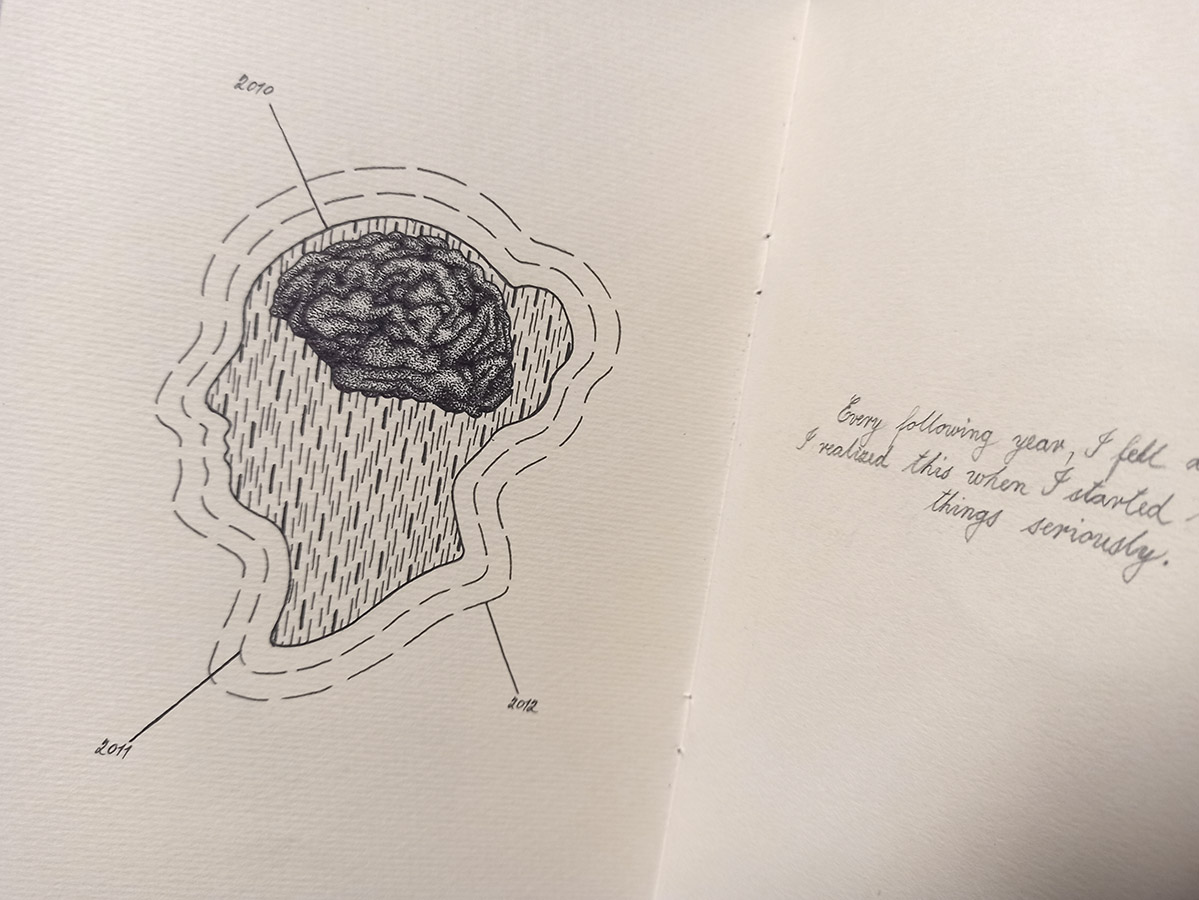 2010
2011
2012
Every following year, I fell
I realized this when I started
things seriously.